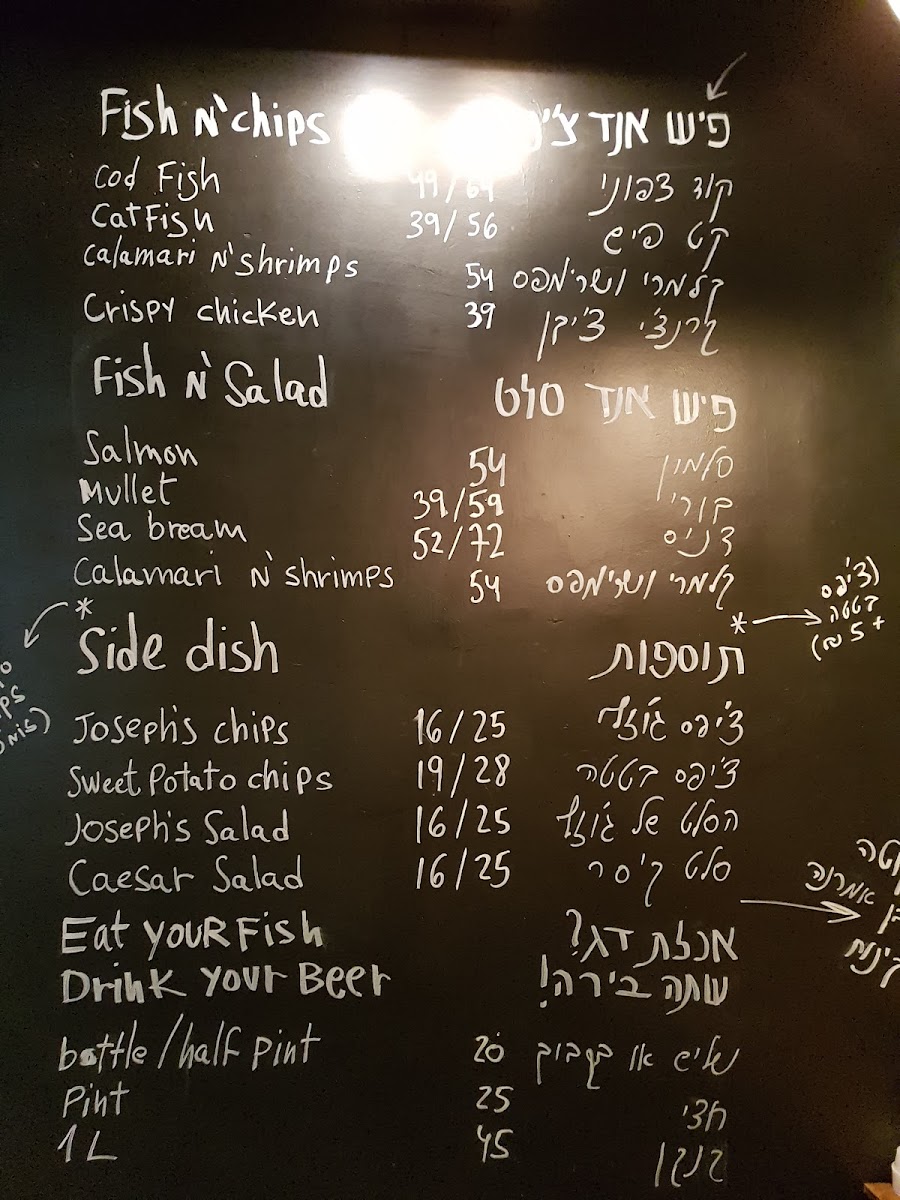 Fish N' chips פיש אנד
Cod Fish 49/64 קוד צפוני
CatFish 39/56 קט פיש
Calamari N' shrimps 54 קלמרי ושרימפס
Crispy chicken 39 קרנצ'י צ'יקן
Fish N' Salad פיש אנד סלט
Salmon 54 סלמון
Mullet 39/59 בורי
Sea bream 52/72 דניס
Calamari N' shrimps 54 קלמרי ושרימפס
(צ'יפס
בטטה
+5 ₪)
* *
Side dish תוספות
Joseph's chips 16/25 צ'יפס ג'וזף
Sweet Potato chips 19/28 צ'יפס בטטה
Joseph's Salad 16/25 הסלט של ג'וזף
Caesar Salad 16/25 סלט קיסר
Eat YOUR Fish אכלת דג?
Drink Your Beer שתה בירה!
bottle/half Pint 20 שליש או בקבוק
Pint 25 חצי
1 L 45 קנקן